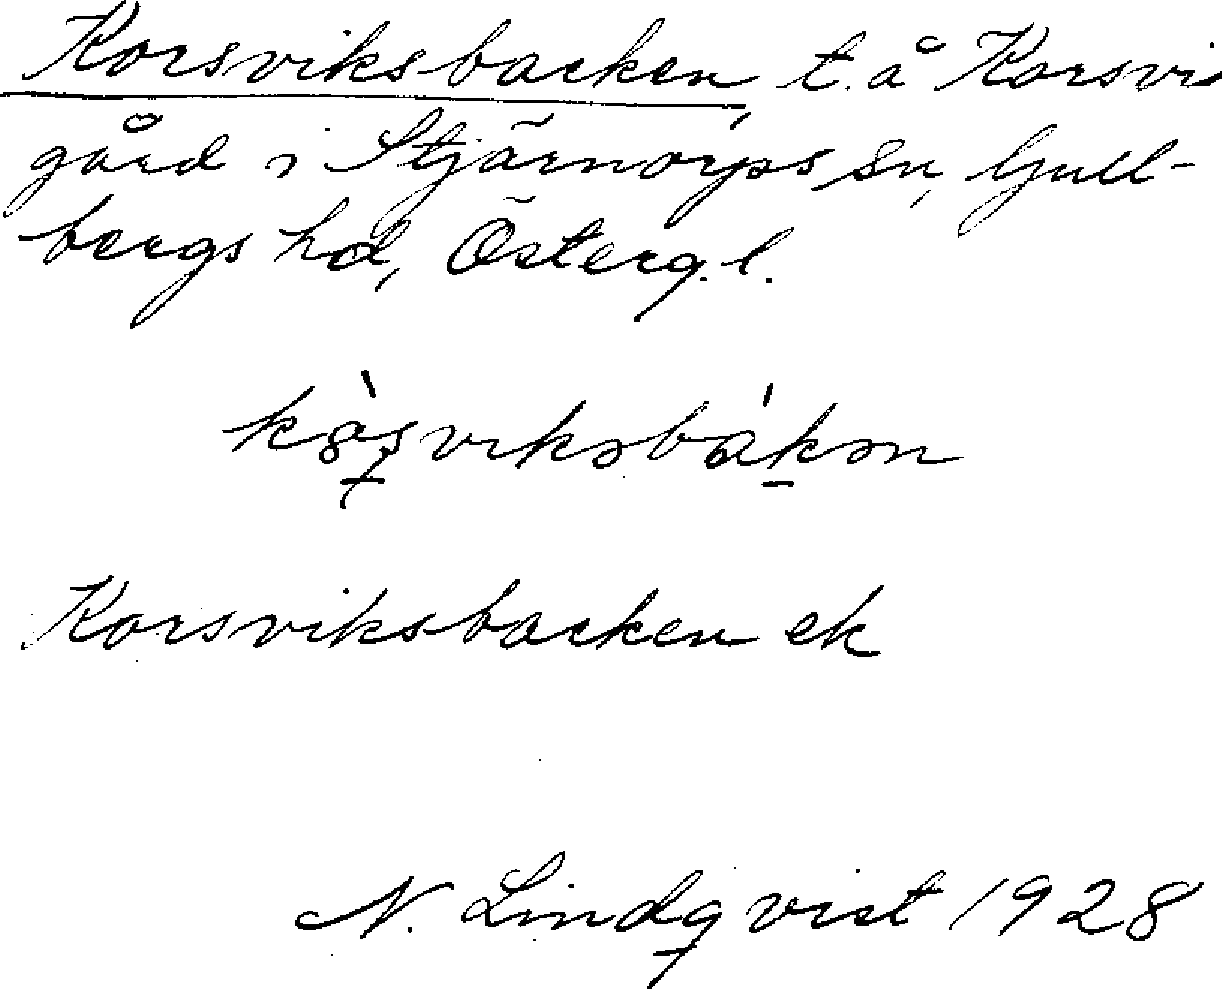 Korsviksbacken, t. å Korsvi
gård i Stjärnorps sn, Gull-
bergs hd, Österg. l.
Korsviksbacken ek
N. Lindqvist 1928